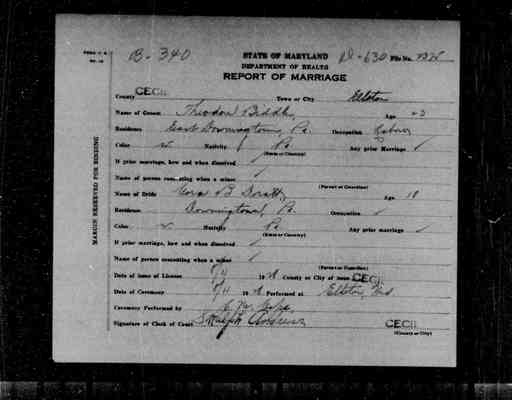 B-340 STATE OF MARYLAND D-630 File No.
DEPARTMENT OF HEALTH
REPORT OF MARRIAGE
County CECIL Town or City Elkton
Name of Groom Theodore Biddle Age
Residence East Downingtown, Pa. Occupation Laborer
Color w Nativity Pa. Any prior Marriage ✓
(State or Country)
If prior marriage, how and when dissolved ✓
Name of person consenting when a minor ✓
(Parent or Guardian)
Name of Bride Cora B Age 18
Residence Downingtown, Pa. Occupation ✓
Color w Nativity Pa. Any prior marriage ✓
(State or Country)
If prior marriage, how and when dissolved ✓
Name of person consenting when a minor ✓
(Parent or Guardian)
Date of issue of License 19 County or City of issue CECIL
Date of Ceremony 19 Performed at Elkton, Md
Ceremony Performed by
Signature of Clerk of Court CECIL
(County or City)
MARGIN RESERVED FOR BINDING